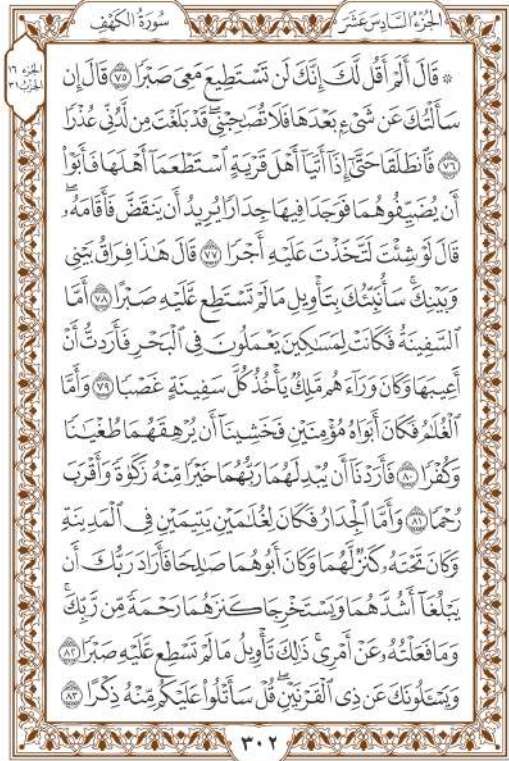 الجُزْءُ السَّادِسَ عَشَرَ
سُورَةُ الكَهْفِ
الجزء ١٦
الحزب ٣١
۞ قَالَ أَلَمْ أَقُل لَّكَ إِنَّكَ لَن تَسْتَطِيعَ مَعِيَ صَبْرًا ٧٥ قَالَ إِن
سَأَلْتُكَ عَن شَيْءٍ بَعْدَهَا فَلَا تُصَٰحِبْنِي ۖ قَدْ بَلَغْتَ مِن لَّدُنِّي عُذْرًا
٧٦ فَٱنطَلَقَا حَتَّىٰٓ إِذَآ أَتَيَآ أَهْلَ قَرْيَةٍ ٱسْتَطْعَمَآ أَهْلَهَا فَأَبَوْا۟
أَن يُضَيِّفُوهُمَا فَوَجَدَا فِيهَا جِدَارًا يُرِيدُ أَن يَنقَضَّ فَأَقَامَهُۥ ۖ
قَالَ لَوْ شِئْتَ لَتَّخَذْتَ عَلَيْهِ أَجْرًا ٧٧ قَالَ هَٰذَا فِرَاقُ بَيْنِي
وَبَيْنِكَ ۚ سَأُنَبِّئُكَ بِتَأْوِيلِ مَا لَمْ تَسْتَطِع عَّلَيْهِ صَبْرًا ٧٨ أَمَّا
ٱلسَّفِينَةُ فَكَانَتْ لِمَسَٰكِينَ يَعْمَلُونَ فِي ٱلْبَحْرِ فَأَرَدتُّ أَنْ
أَعِيبَهَا وَكَانَ وَرَآءَهُم مَّلِكٌ يَأْخُذُ كُلَّ سَفِينَةٍ غَصْبًا ٧٩ وَأَمَّا
ٱلْغُلَٰمُ فَكَانَ أَبَوَاهُ مُؤْمِنَيْنِ فَخَشِينَآ أَن يُرْهِقَهُمَا طُغْيَٰنًا
وَكُفْرًا ٨٠ فَأَرَدْنَآ أَن يُبْدِلَهُمَا رَبُّهُمَا خَيْرًا مِّنْهُ زَكَوٰةً وَأَقْرَبَ
رُحْمًا ٨١ وَأَمَّا ٱلْجِدَارُ فَكَانَ لِغُلَٰمَيْنِ يَتِيمَيْنِ فِي ٱلْمَدِينَةِ
وَكَانَ تَحْتَهُۥ كَنزٌ لَّهُمَا وَكَانَ أَبُوهُمَا صَٰلِحًا فَأَرَادَ رَبُّكَ أَن
يَبْلُغَآ أَشُدَّهُمَا وَيَسْتَخْرِجَا كَنزَهُمَا رَحْمَةً مِّن رَّبِّكَ ۚ
وَمَا فَعَلْتُهُۥ عَنْ أَمْرِي ۚ ذَٰلِكَ تَأْوِيلُ مَا لَمْ تَسْطِع عَّلَيْهِ صَبْرًا ٨٢
وَيَسْـَٔلُونَكَ عَن ذِي ٱلْقَرْنَيْنِ ۖ قُلْ سَأَتْلُوا۟ عَلَيْكُم مِّنْهُ ذِكْرًا ٨٣
٣٠٢